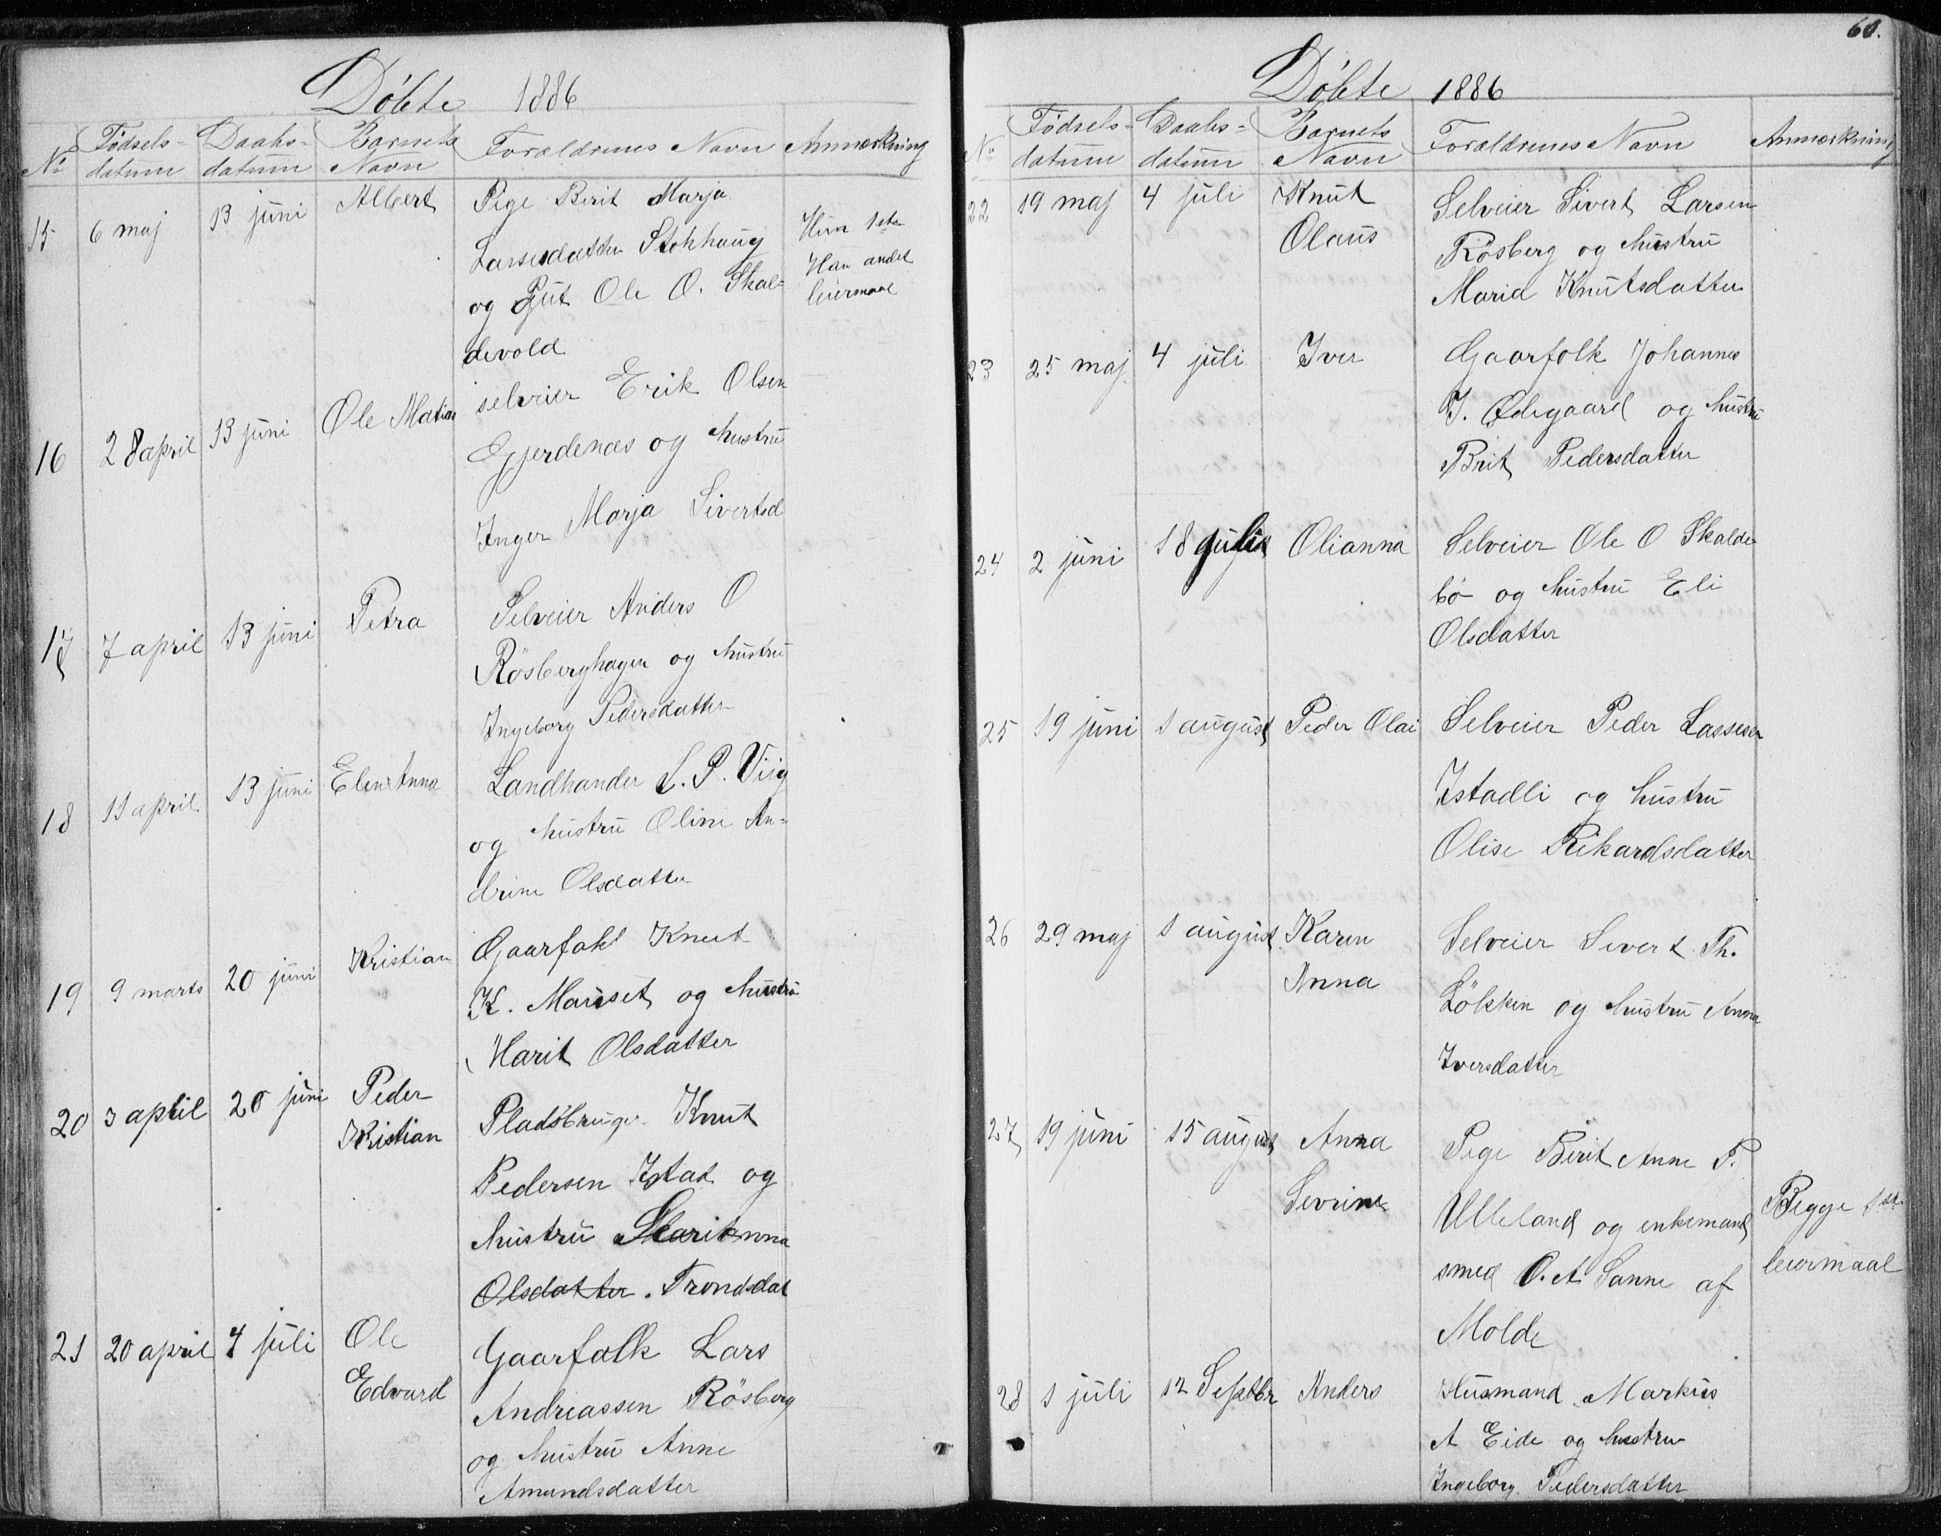 Döbte 1886
No Fødsels- datum Daabs- datum Barnets Navn Foraldrenes Navn Anmærkning
15 6 maj 13 juni Albert Pige Berit Marja
Larsesdatter Stokhaug
og Gut Ole O. Skal-
devold
Hun 1ste
Han andet
leiermaal
16 28 april 13 juni Ole Matias selveier Erik Olsen
Gjerdenæs og hustru
Inger Marja Sivertsd
17 7 april 13 juni Petra Selveier Anders O
Rösberghagen og hustru
Ingeborg Pedersdatter
18 11 april 13 juni Eline Anna Landhander L. P. Viig
og hustru Oline An-
drine Olsdatter
19 9 marts 20 juni Kristian Gaarfolk Knut
K. Mauset og hustru
Marit Olsdatter
20 3 april 20 juni Peder
Kristian
Pladsbruger Knut
Pedersen Istad og
hustru Marit Anna
Olsdatter. Trondsdat
21 20 april 4 juli Ole
Edvard
Gaarfolk Lars
Andreassen Rösberg
og hustru Anne
Amundsdatter
60.
Döbte 1886
No Fødsels- datum Daabs- datum Barnets Navn Foraldrenes Navn Anmærkning
22 19 maj 4 juli Knut
Olaus
Selveier Sivert Larsen
Rösberg og hustru
Maria Knutsdatter
23 25 maj 4 juli Iver Gaarfolk Johannes
I. Ødegaard og hustru
Brit Pedersdatter
24 2 juni 18 juli Olianna Selveier Ole O Skalde
bö og hustru Eli
Olsdatter
25 19 juni 1 august Peder Olai Selveier Peder Lassesen
Istadli og hustru
Olise Rikardsdatter
26 29 maj 1 august Karen
Anna
Selveier Sivert Th.
Lökken og hustru Anna
Iversdatter
27 19 juni 15 august Anna
Sevrine
Pige Berit Anne P.
Ulleland og enkemand
smed O. A. Sanne af
Molde
Begge 1ste
leiermaal
28 1 juli 12 Septbr Anders Husmand Markus
A Eide og hustru
Ingeborg Pedersdatter